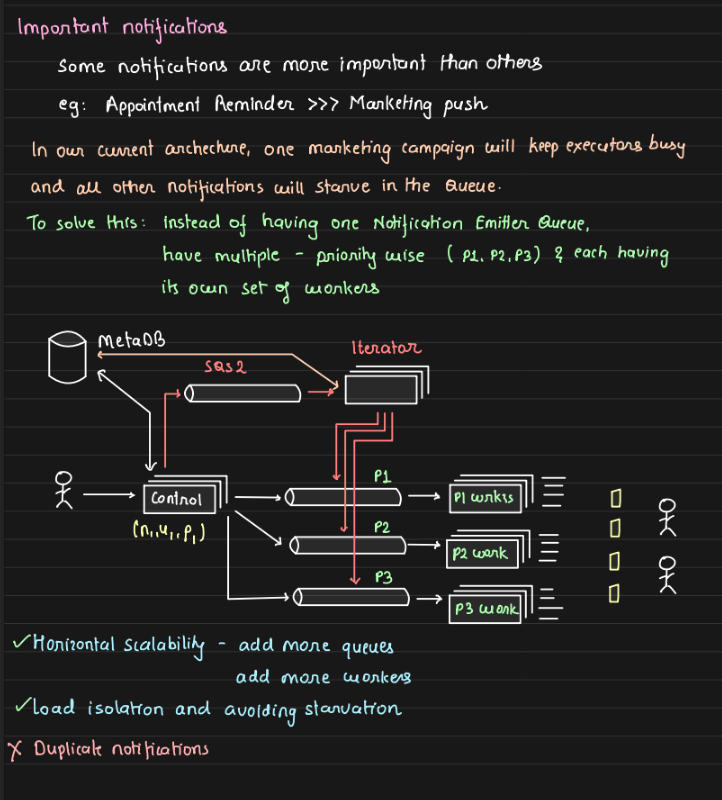 Important notifications
Some notifications are more important than others
eg: Appointment Reminder >>> Marketing push
In our current archecture, one marketing campaign will keep executors busy
and all other notifications will starve in the Queue.
To solve this: instead of having one Notification Emitter Queue,
have multiple - priority wise (P1, P2, P3) & each having
its own set of workers
MetaDB
Iterator
SQS2
P1
Control
P1 wrkrs
(n₁, u₁, P₁)
P2
P2 work
P3
P3 work
✓ Horizontal scalability - add more queues
add more workers
✓ Load isolation and avoiding starvation
X Duplicate notifications